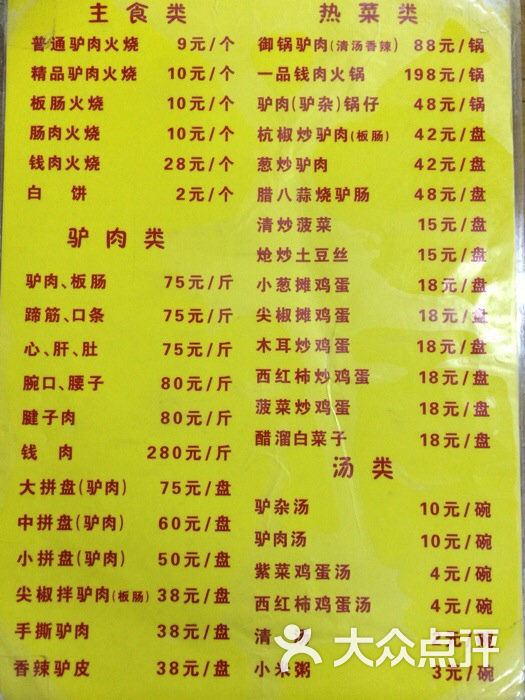 主食类
普通驴肉火烧 9元/个
精品驴肉火烧 10元/个
板肠火烧 10元/个
肠肉火烧 10元/个
钱肉火烧 28元/个
白饼 2元/个
驴肉类
驴肉、板肠 75元/斤
蹄筋、口条 75元/斤
心、肝、肚 75元/斤
腕口、腰子 80元/斤
腱子肉 80元/斤
钱肉 280元/斤
大拼盘(驴肉) 75元/盘
中拼盘(驴肉) 60元/盘
小拼盘(驴肉) 50元/盘
尖椒拌驴肉(板肠) 38元/盘
手撕驴肉 38元/盘
香辣驴皮 38元/盘
热菜类
御锅驴肉(清汤香辣) 88元/锅
一品钱肉火锅 198元/锅
驴肉(驴杂)锅仔 48元/锅
杭椒炒驴肉(板肠) 42元/盘
葱炒驴肉 42元/盘
腊八蒜烧驴肠 48元/盘
清炒菠菜 15元/盘
炝炒土豆丝 15元/盘
小葱摊鸡蛋 18元/盘
尖椒摊鸡蛋 18元/盘
木耳炒鸡蛋 18元/盘
西红柿炒鸡蛋 18元/盘
菠菜炒鸡蛋 18元/盘
醋溜白菜子 18元/盘
汤类
驴杂汤 10元/碗
驴肉汤 10元/碗
紫菜鸡蛋汤 4元/碗
西红柿鸡蛋汤 4元/碗
清
小米粥 3元/碗
大众点评